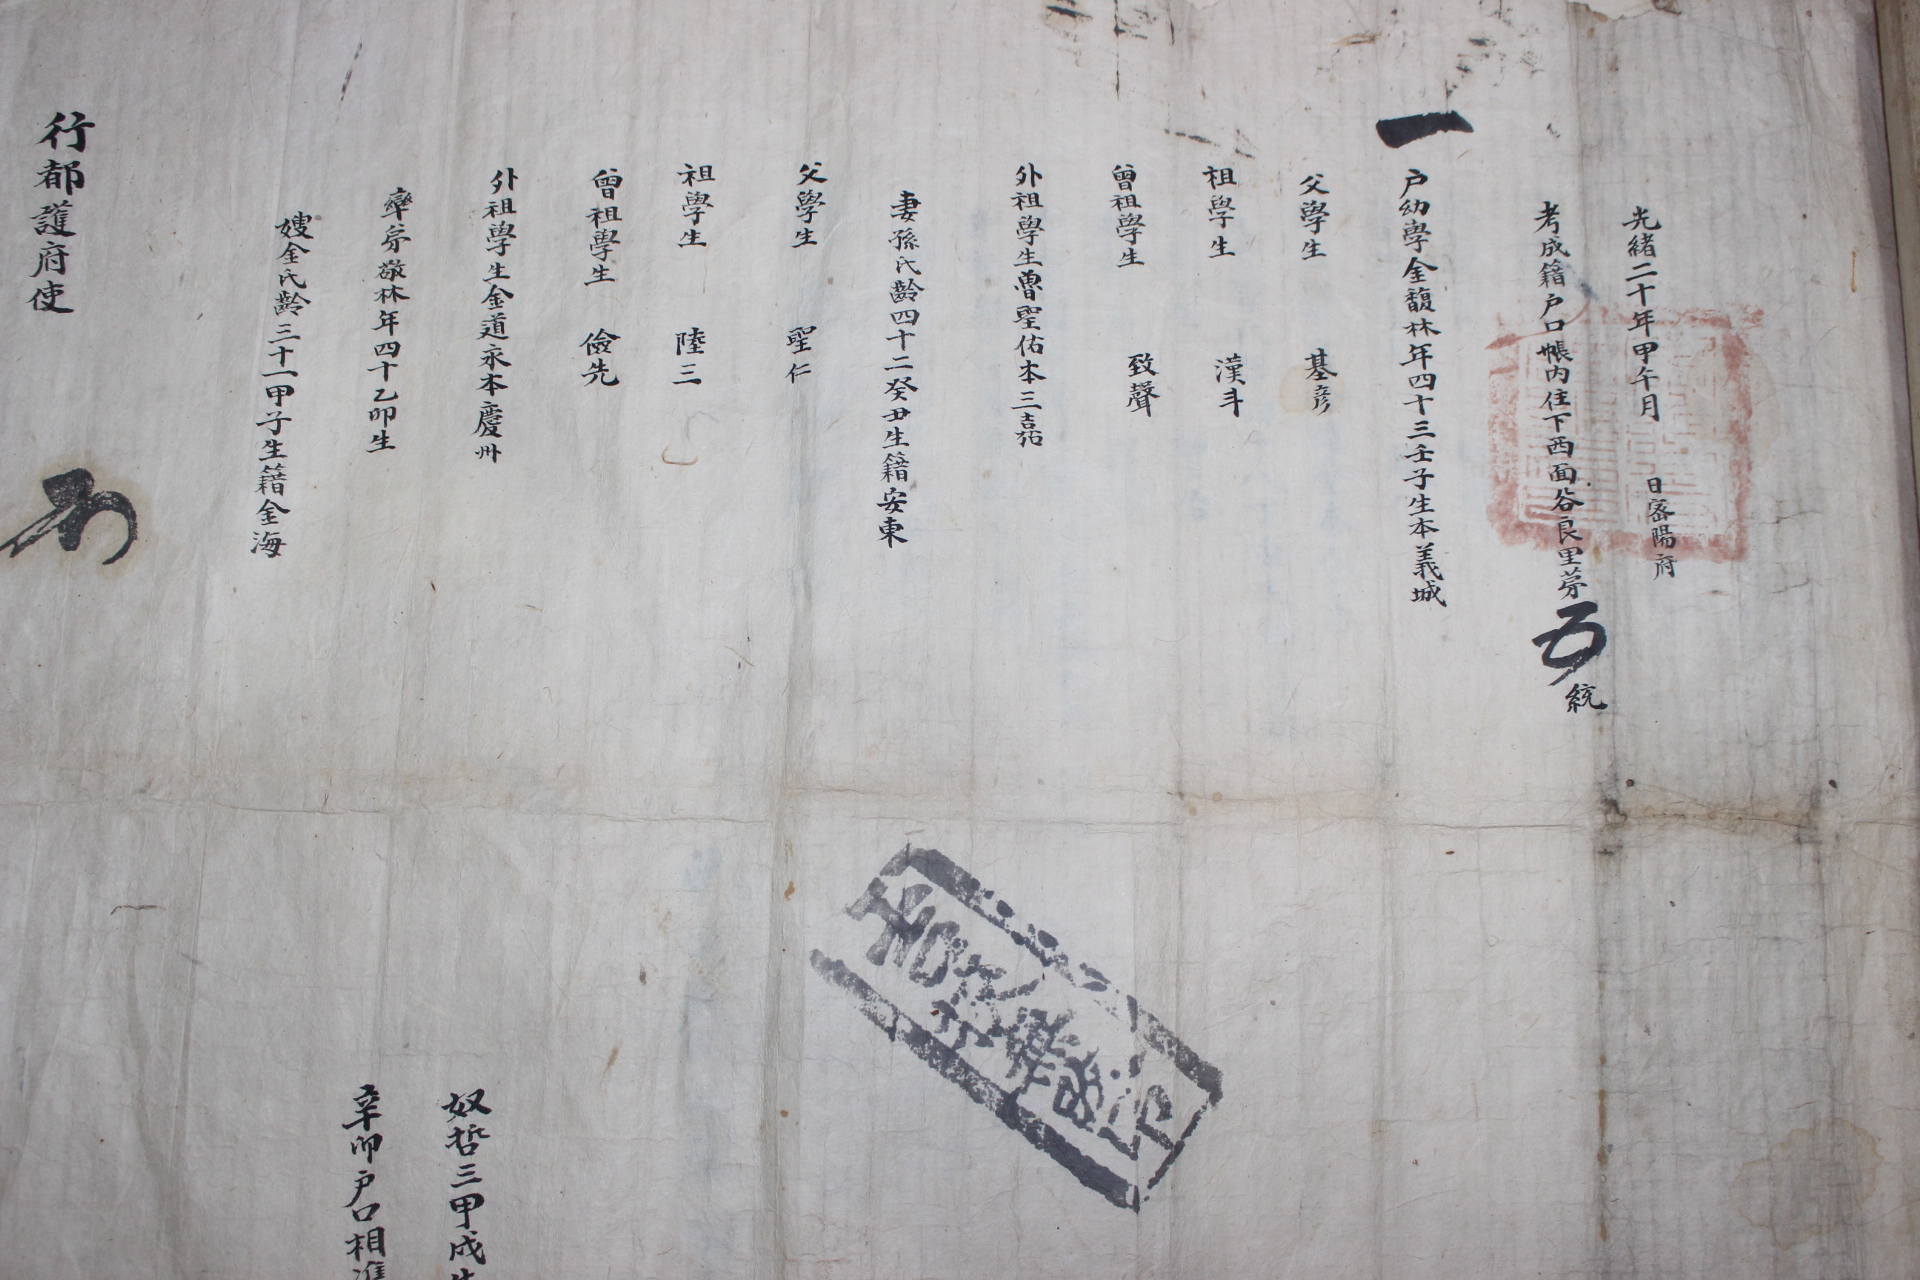 光緒二十年甲午月 日密陽府
考成籍户口帳內住下西面谷良里第五統
一
户幼學金馥林年四十三壬子生本義城
父學生 基彦
祖學生 漢斗
曾祖學生 致聲
外祖學生曺聖佑本三嘉
妻孫氏齡四十二癸丑生籍安東
父學生 聖仁
祖學生 陸三
曾祖學生 儉先
外祖學生金道永本慶州
率弟敬林年四十乙卯生
嫂金氏齡三十一甲子生籍金海
奴哲三甲戌生
辛卯户口相準
行都護府使